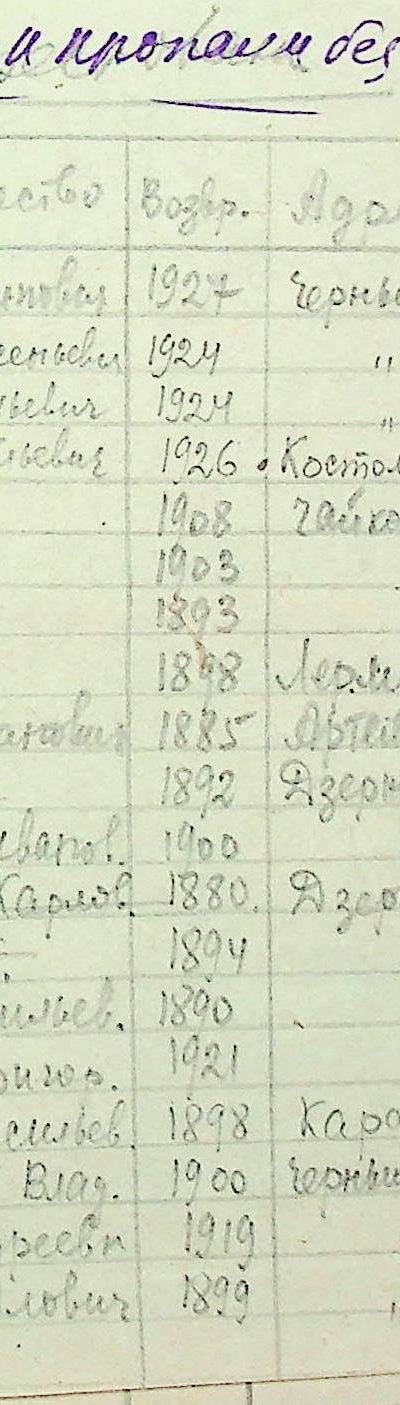 и пропали без
ество Возвр. Адр
ановвич 1927 Черны
сеньевич 1924 "
льевич 1924 "
льевич 1926 Костол
1908 Чайко
1903
1893
1898 Лерм
анович 1885 Арте
1892 Дзерж
Иванов. 1900
Карлов. 1880. Дзер
1894
сильев. 1890
ригор. 1921
сильев. 1898 Каро
Влад. 1900 Черны
реевн 1919
лович 1899 "